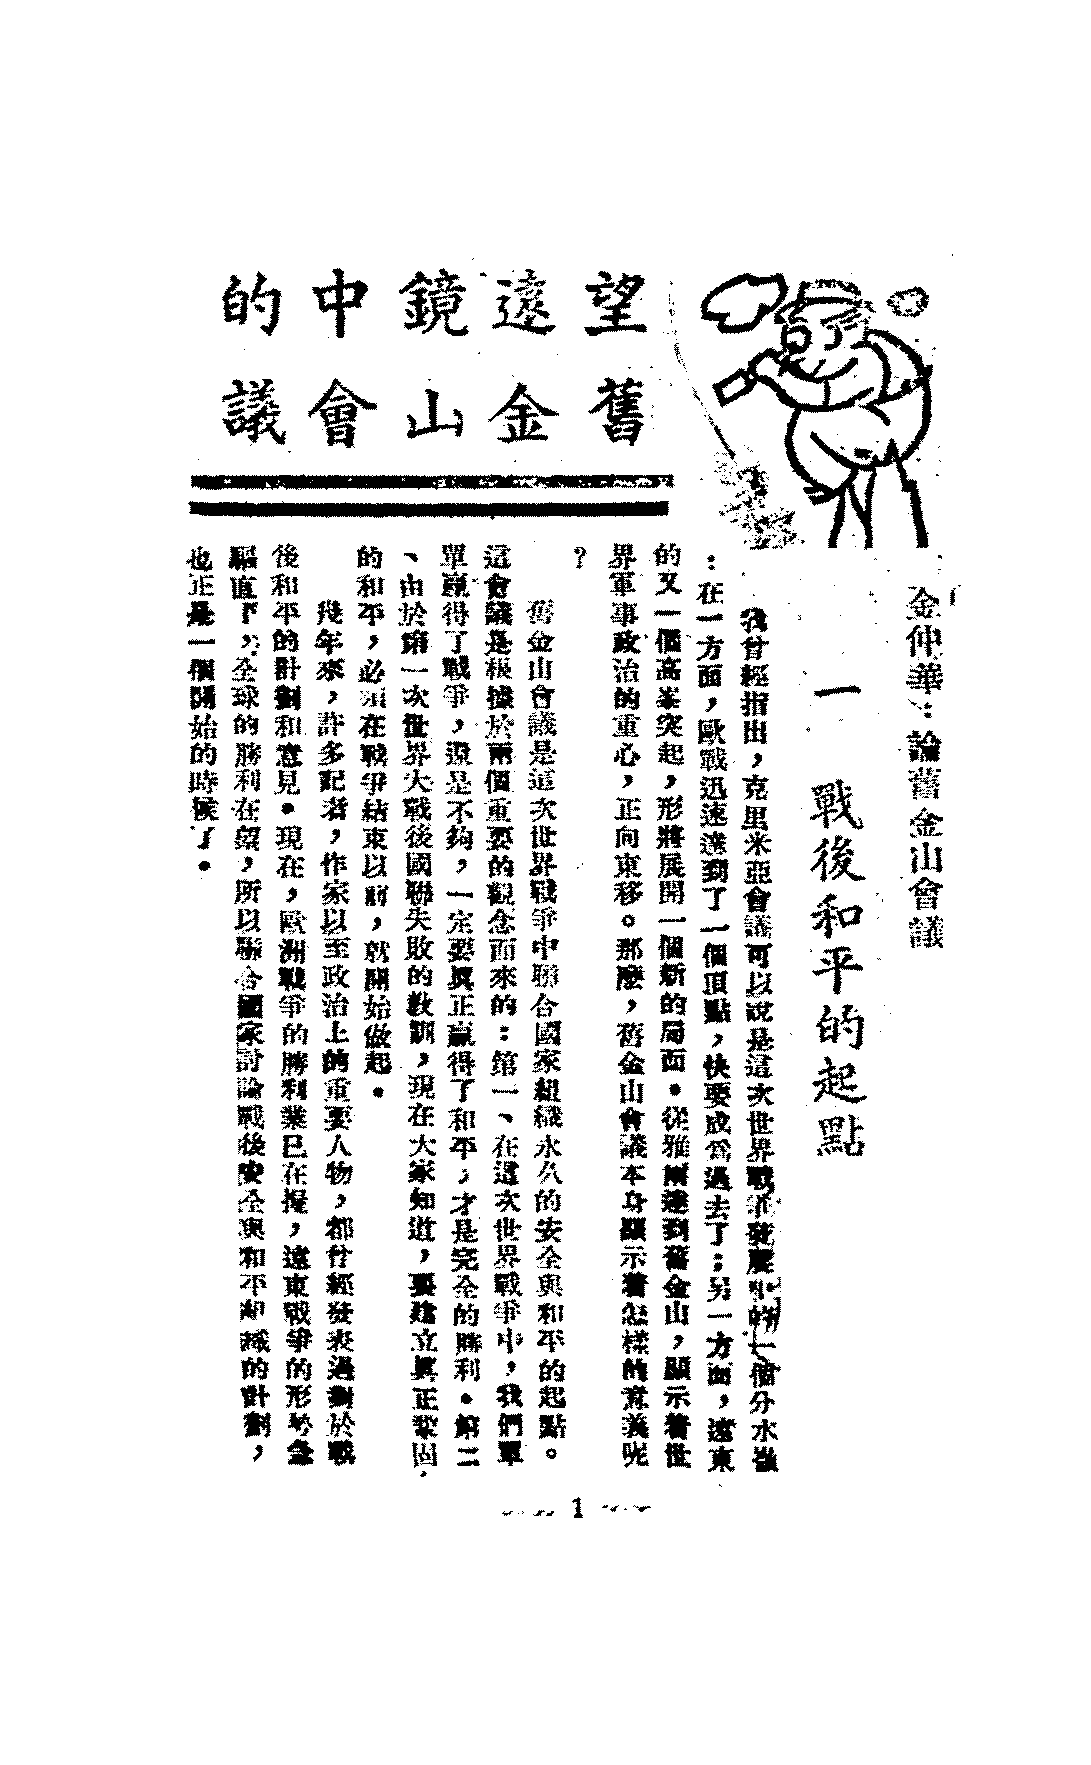 望遠鏡中的
舊金山會議
金仲華：論舊金山會議
一　戰後和平的起點
我曾經指出，克里米亞會議可以說是這次世界戰爭發展中的一個分水嶺
：在一方面，歐戰迅速達到了一個頂點，快要成爲過去了；另一方面，遠東
的又一個高峯突起，形將展開一個新的局面。從雅爾達到舊金山，顯示着世
界軍事政治的重心，正向東移。那麼，舊金山會議本身顯示着怎樣的意義呢
？
舊金山會議是這次世界戰爭中聯合國家組織永久的安全與和平的起點。
這會議是根據於兩個重要的觀念而來的：第一、在這次世界戰爭中，我們單
單贏得了戰爭，還是不夠，一定要眞正贏得了和平，才是完全的勝利。第二
、由於第一次世界大戰後國聯失敗的教訓，現在大家知道，要建立眞正鞏固
的和平，必須在戰爭結束以前，就開始做起。
幾年來，許多記者，作家以至政治上的重要人物，都曾經發表過對於戰
後和平的計劃和意見。現在，歐洲戰爭的勝利業已在握，遠東戰爭的形勢急
驅直下，全球的勝利在望，所以聯合國家討論戰後安全與和平組織的計劃，
也正是一個開始的時候了。
1